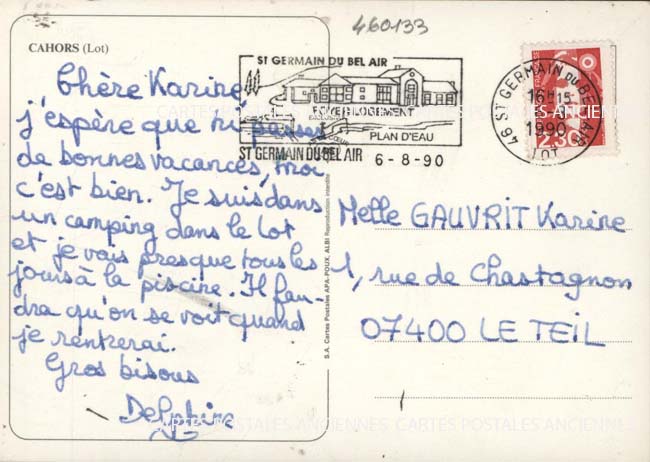 460133
CAHORS (Lot)
Chère Karine
j'espère que tu passes
de bonnes vacances, moi
c'est bien. Je suis dans
un camping dans le Lot
et je vais presque tous les
jours à la piscine. Il fau-
dra qu'on se voit quand
je rentrerai.
Gros bisous
Delphine
ST GERMAIN DU BEL AIR
FOYER LOGEMENT
PLAN D'EAU
ST GERMAIN DU BEL AIR 6-8-90
46 ST GERMAIN DU BEL AIR
16H15
1990
LOT
2,30
Melle GAUVRIT Karine
1, rue de Chastagnon
07400 LE TEIL
S.A. Cartes Postales APA-POUX, ALBI Reproduction interdite
CARTES POSTALES ANCIENNES CARTES POSTALES ANCIENNES